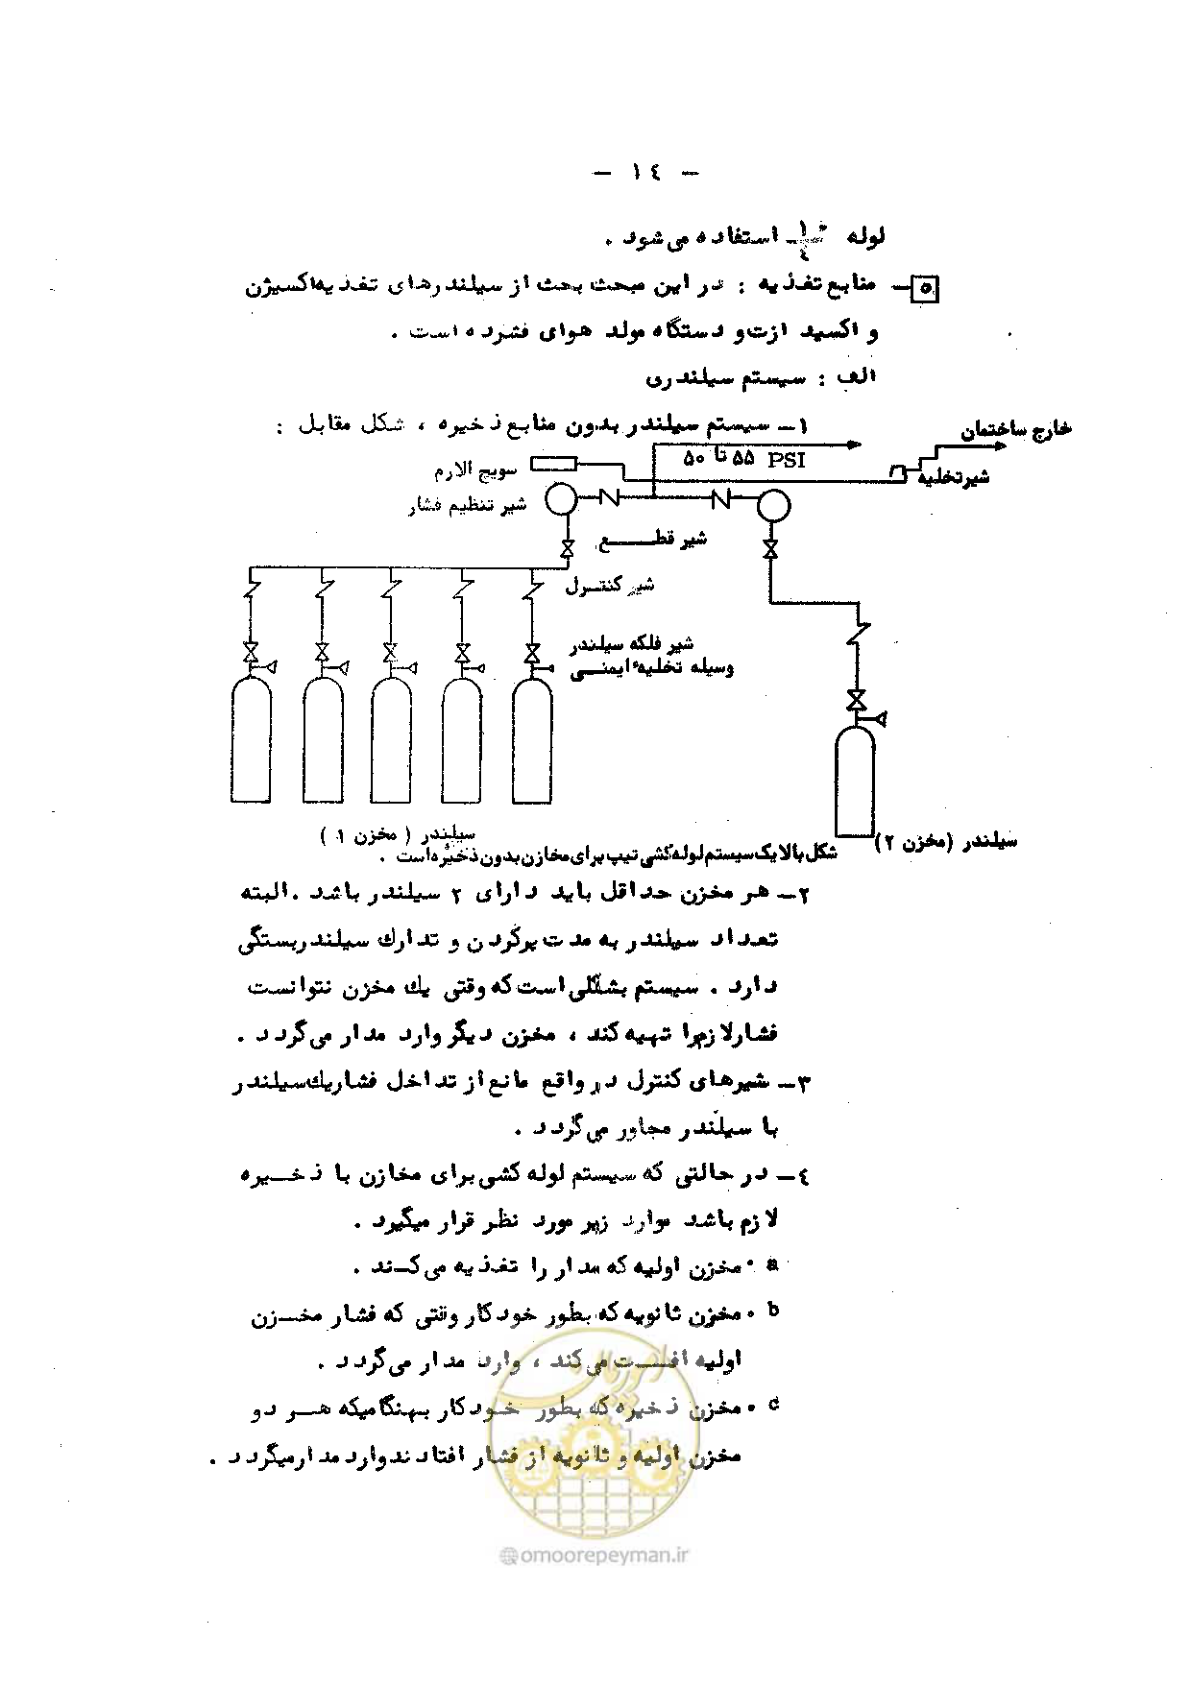 - ١٤ -
لوله ١/٤" استفاده می‌شود .
۵ - منابع تغذیه : در این مبحث بحث از سیلندرهای تغذیه اکسیژن
و اکسید ازت و دستگاه مولد هوای فشرده است .
الف : سیستم سیلندری
١- سیستم سیلندر بدون منابع ذخیره ، شکل مقابل :
خارج ساختمان
۵۵ تا ۵۰ PSI
سویچ الارم
شیر تخلیه
شیر تنظیم فشار
شیر قطع
شیر کنترل
شیر فلکه سیلندر
وسیله تخلیه ایمنی
سیلندر ( مخزن ١ )
سیلندر (مخزن ٢)
شکل بالا یک سیستم لوله کشی تیپ برای مخازن بدون ذخیره است .
٢- هر مخزن حداقل باید دارای ٢ سیلندر باشد . البته
تعداد سیلندر به مدت پرکردن و تدارك سیلندر بستگی
دارد . سیستم بشکلی است که وقتی يك مخزن نتوانست
فشار لازم را تهیه کند ، مخزن دیگر وارد مدار می‌گردد .
٣- شیرهای کنترل در واقع مانع از تداخل فشار يك سیلندر
با سیلندر مجاور می‌گردد .
٤- در حالتی که سیستم لوله کشی برای مخازن با ذخیره
لازم باشد موارد زیر مورد نظر قرار میگیرد .
a • مخزن اولیه که مدار را تغذیه می‌کند .
b • مخزن ثانویه که بطور خودکار وقتی که فشار مخزن
اولیه افت می‌کند ، وارد مدار می‌گردد .
c • مخزن ذخیره که بطور خودکار بهنگامیکه هر دو
مخزن اولیه و ثانویه از فشار افتادند وارد مدار میگردد .
امور پیمان
@omoorepeyman.ir